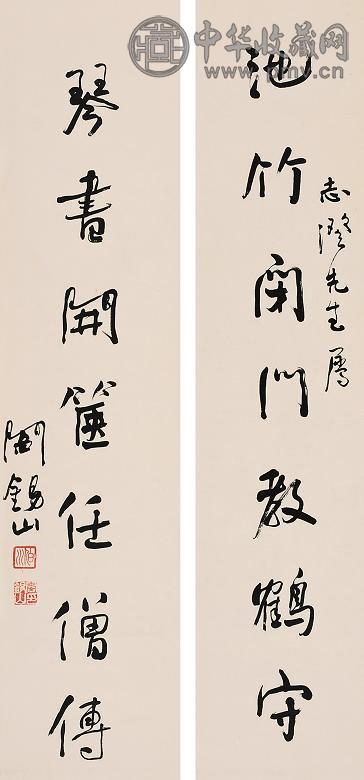 中华收藏网
www.pmv.cn
志澄先生屬
池竹閉門教鶴守
琴書開篋任僧傳
閻錫山